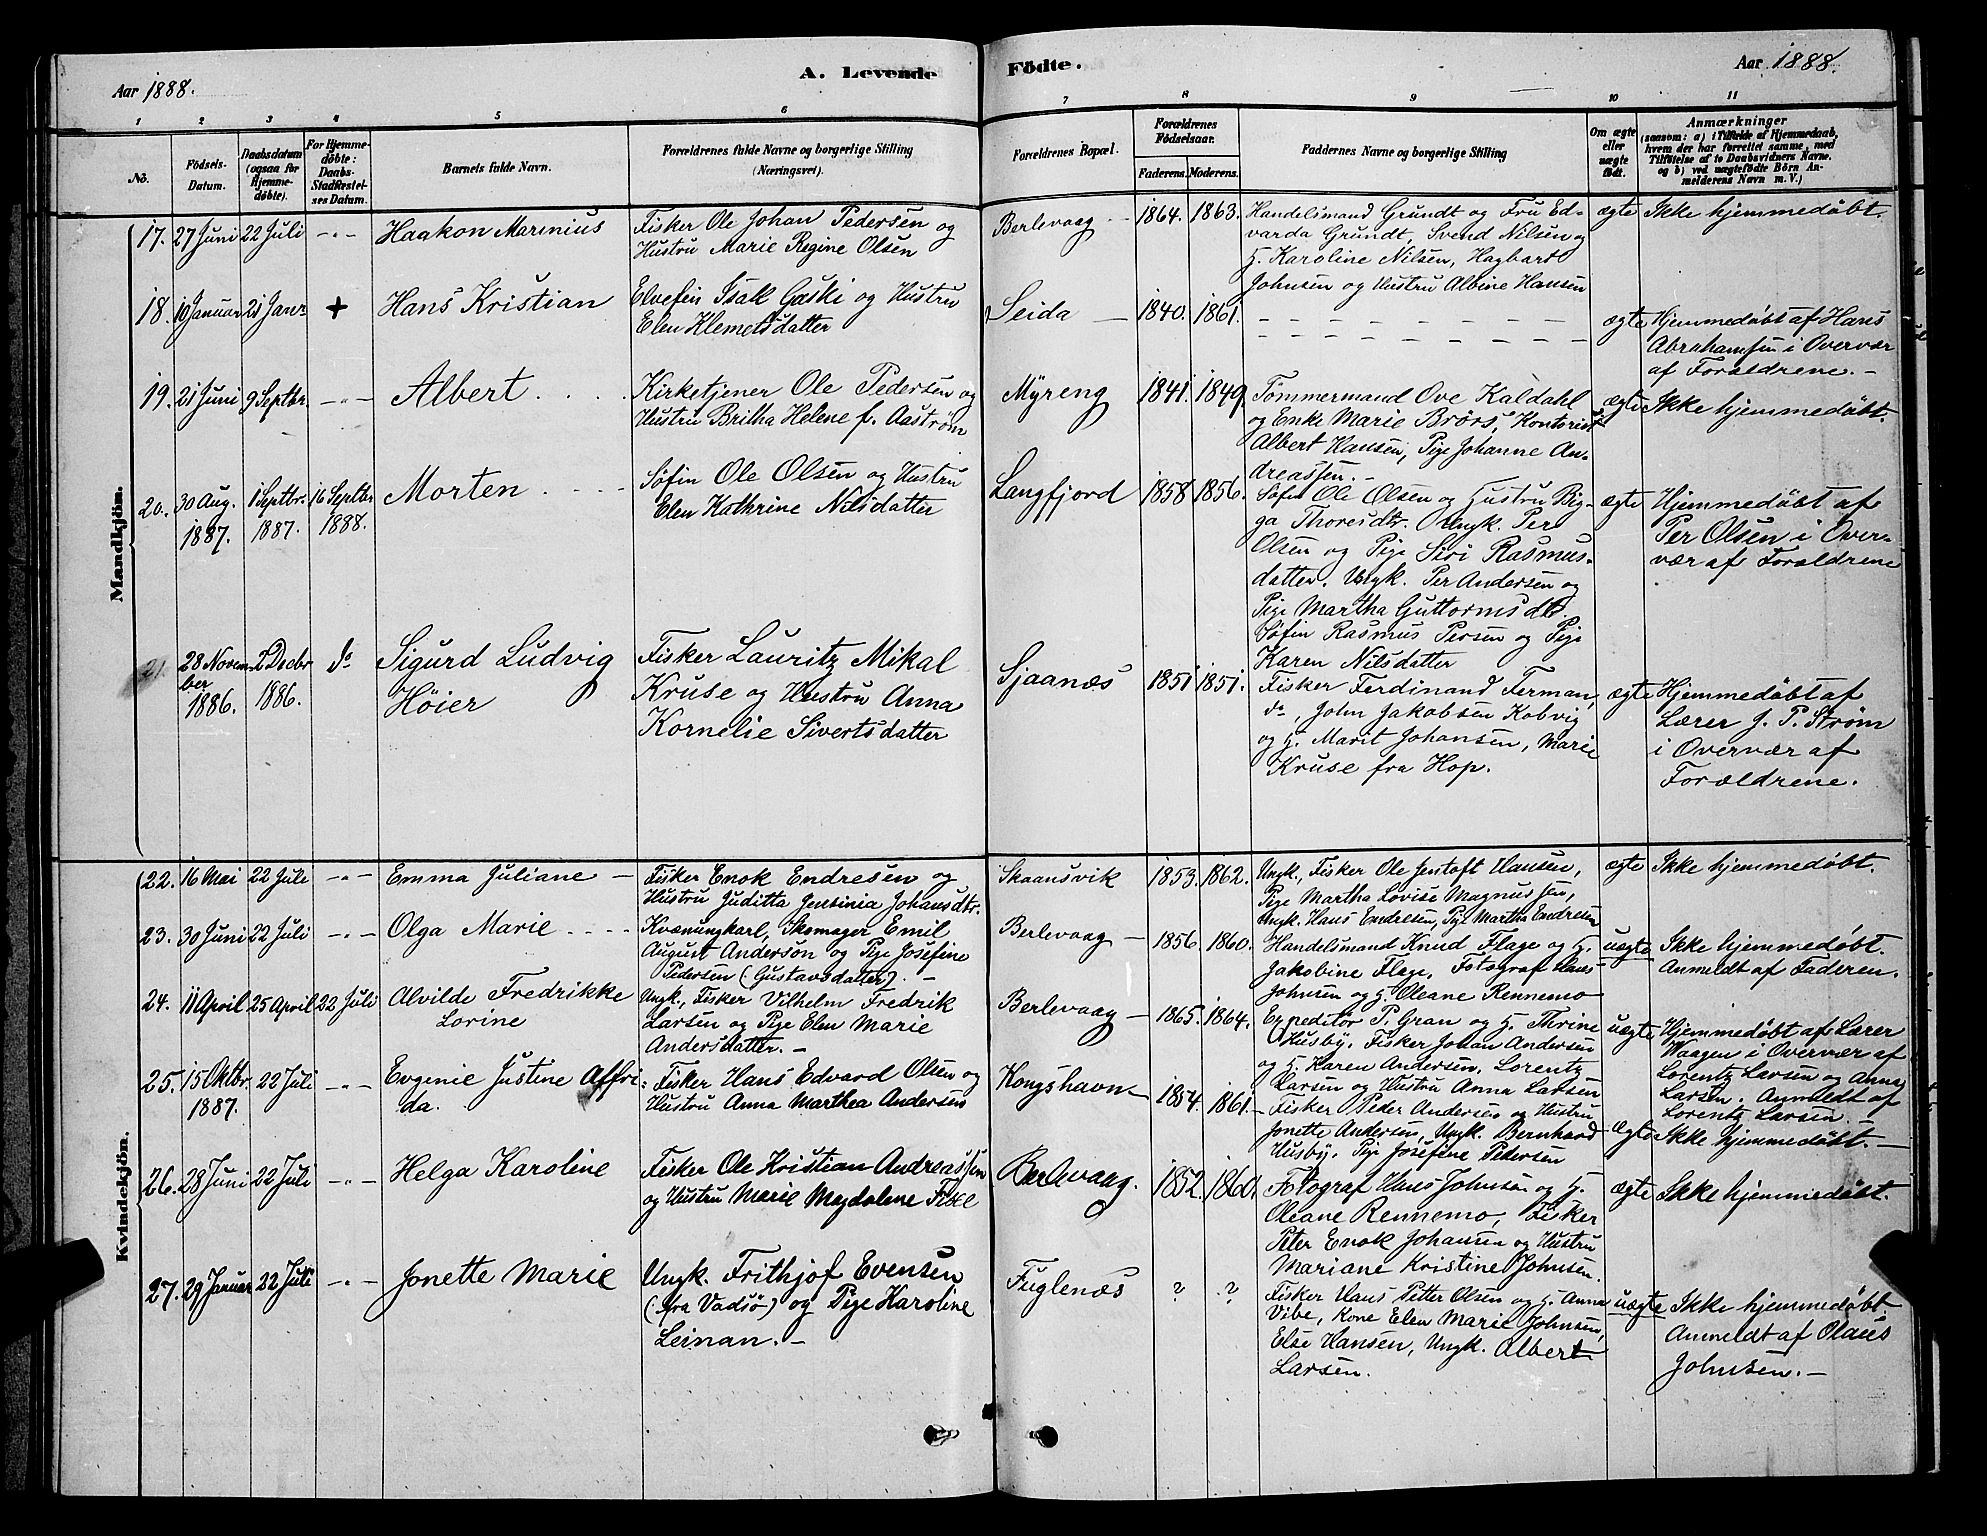 Aar 1888.
A. Levende Födte.
Aar 1888.
1 2 3 4 5 6 7 8 9 10 11
No.
Födsels-
Datum.
Daabsdatum
(ogsaa for
Hjemme-
døbte).
For Hjemme-
døbte:
Daabs-
Stadfæstel-
ses Datum.
Barnets fulde Navn.
Forældrenes fulde Navne og borgerlige Stilling
(Næringsvei).
Forældrenes Bopæl.
Forældrenes
Födselsaar.
Faderens. Moderens.
Faddernes Navne og borgerlige Stilling
Om ægte
eller
uægte
födt.
Anmærkninger
(saasom: a) i Tilfælde af Hjemmedaab,
hvem der har forrettet samme, med
Tilföielse af to Daabsvidners Navne,
og b) ved uægtefödte Börn An-
melderens Navn m. V.)
Mandkjön.
17. 27 Juni 22 Juli -"- Haakon Marinius
Fisker Ole Johan Pedersen og
Hustru Marie Regine Olsen
Berlevaag - 1864. 1863.
Handelsmand Grundt og Fru Ed-
varda Grundt, Svend Nilsen og
H. Karoline Nilsen, Hagbart
Johnsen og Hustru Albine Hansen
ægte Ikke hjemmedøbt.
18. 10 Januar 21 Janr + Hans Kristian
Elvefin Isak Gaski og Hustru
Elen Klemetsdatter
Seida - 1840. 1861.
ægte Hjemmedøbt af Hans
Abrahamsen i Overvær
af Forældrene. -
19. 21 Juni 9 Septbr. -"- Albert
Kirketjener Ole Pedersen og
Hustru Britha Helene f. Aaström
Myreng 1841. 1849.
Tømmermand Ove Kaldahl
og Enke Marie Brörs, Kontorist
Albert Hansen, Pige Johanne An-
dreassen. -
ægte Ikke hjemmedøbt.
20. 30 Aug. 1887. 1 Septbr. 1887. 16 Septbr 1888. Morten
Søfin Ole Olsen og Hustru
Elen Kathrine Nilsdatter
Langfjord 1858. 1856.
Søfin Ole Olsen og Hustru Big-
ga Thoresdtr. Ungk. Per
Olsen og Pige Siri Rasmus-
datter. Ungk. Per Andersen og
Pige Martha Guttormsdtr.
Søfin Rasmus Persen og Pige
Karen Nilsdatter
ægte Hjemmedøbt af
Per Olsen i Over-
vær af Forældrene
21. 28 Novem-
ber 1886. 2 Decbr 1886. do Sigurd Ludvig
Høier
Fisker Lauritz Mikal
Kruse og Hustru Anna
Kornelie Sivertsdatter
Sjaanæs 1851 1851.
Fisker Ferdinand Ferman,
do, John Jakobsen Kobvig
og H. Marit Johansen, Marie
Kruse fra Hop.
ægte Hjemmedøbt af
Lærer J. P. Strøm
i Overvær af
Forældrene.
Kvindekjön.
22. 16 Mai 22 Juli -"- Emma Juliane -
Fisker Enok Endresen og
Hustru Juditta Jensinia Johansdtr.
Skaansvik 1853. 1862.
Ungk., Fisker Ole Jentoft Hansen,
Pige Martha Lovise Magnussen,
Ungk. Hans Endresen, Pige Martha Endresen
ægte Ikke hjemmedøbt.
23. 30 Juni 22 Juli -"- Olga Marie
Kvænungkarl, Skomager Emil
August Anderson og Pige Josefine
Pedersen (Gustavsdatter). -
Berlevaag - 1856. 1860.
Handelsmand Knud Flage og H.
Jakobine Flage, Fotograf Hans
Johnsen og H. Oleane Rennemo
uægte Ikke hjemmedøbt.
Anmeldt af Faderen.
24. 11 April 25 April 22 Juli Alvilde Fredrikke
Lorine
Ungk., Fisker Vilhelm Fredrik
Larsen og Pige Elen Marie
Andersdatter. -
Berlevaag - 1865. 1864.
Expeditör P. Gran og H. Thrine
Husby, Fisker Johan Andersen
og H. Karen Andersen, Lorentz
Larsen og Hustru Anna Larsen
uægte Hjemmedøbt af Lærer
Waagen i Overvær af
Lorentz Larsen og Anna
Larsen. Anmeldt af
Lorentz Larsen.
25. 15 Oktbr. 1887. 22 Juli -"- Evgenie Justine Affri-
da.
Fisker Hans Edvard Olsen og
Hustru Anna Marthea Andersen
Kongshavn 1854. 1861.
Fisker Peder Andersen og Hustru
Jonette Andersen, Ungk. Bernhard
Husby, Pige Josefine Pedersen
ægte Ikke hjemmedøbt. -
26. 28 Juni 22 Juli -"- Helga Karoline
Fisker Ole Kristian Andreassen
og Hustru Marie Magdalene Fixe
Berlevaag. 1852. 1860.
Fotograf Hans Johnsen og H.
Oleane Rennemo, Fisker
Peter Enok Johansen og Hustru
Mariane Kristine Johnsen.
ægte Ikke hjemmedøbt.
27. 29 Januar 22 Juli -"- Jonette Marie
Ungk. Frithjof Evensen
(fra Vadsö) og Pige Karoline
Leinan. -
Fuglenæs ? ?
Fisker Hans Petter Olsen og H. Anna
Vibe, Kone Elen Marie Johnsen,
Else Hansen, Ungk. Albert
Larsen.
uægte Ikke hjemmedøbt.
Anmeldt af Olaus
Johnsen. -